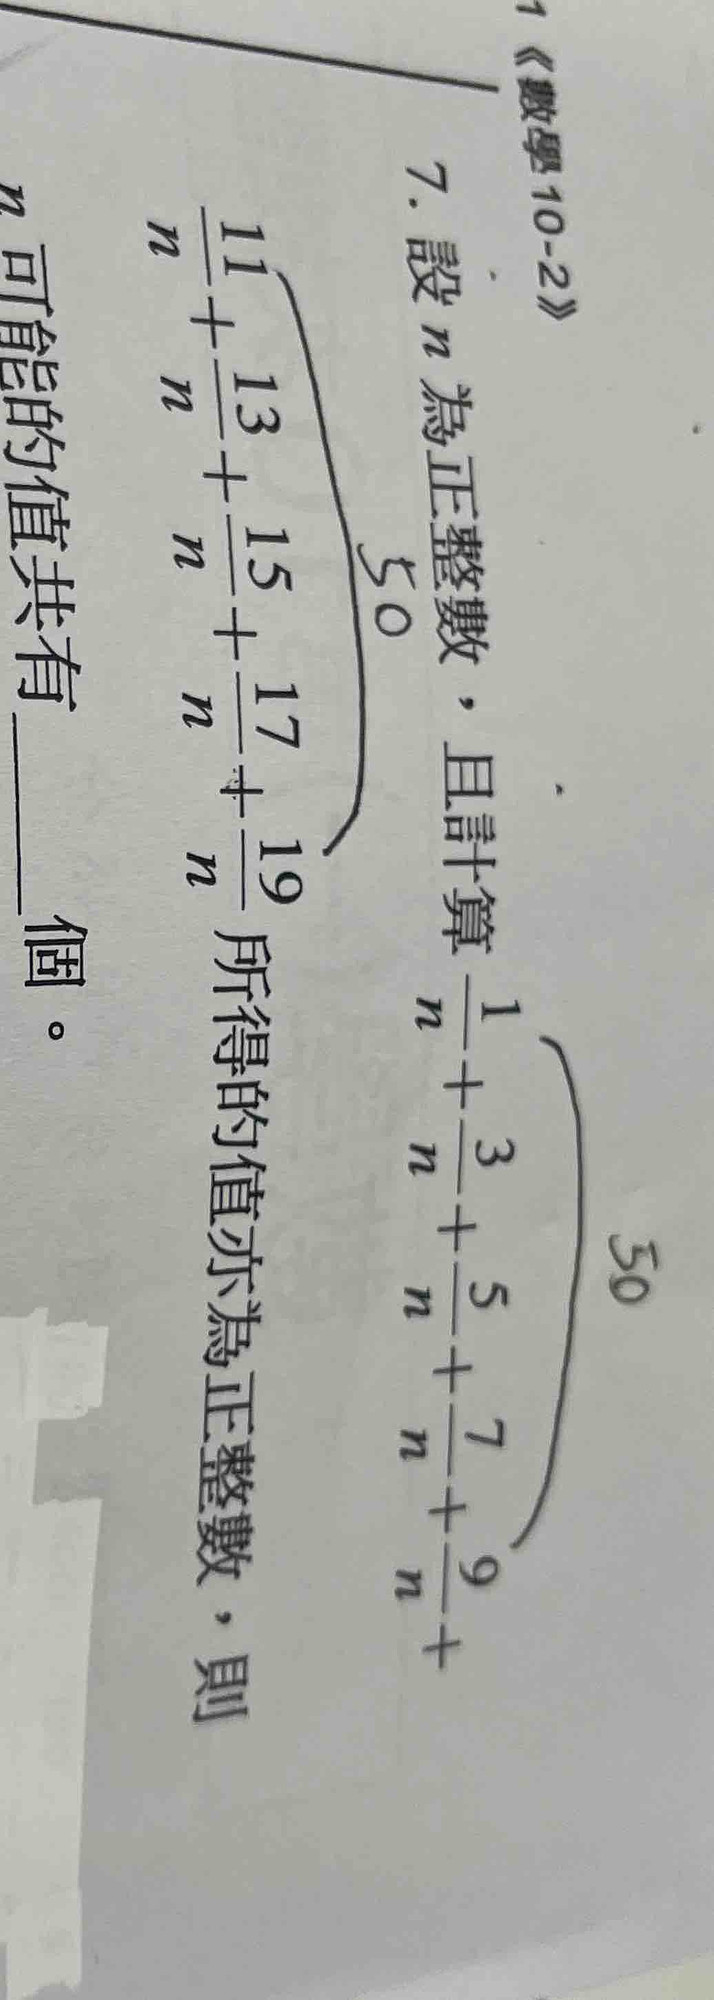 1《數學10-2》
50
7. 設 n 為正整數,且計算 1/n + 3/n + 5/n + 7/n + 9/n +
50
11/n + 13/n + 15/n + 17/n + 19/n 所得的值亦為正整數,則
n 可能的值共有______個。